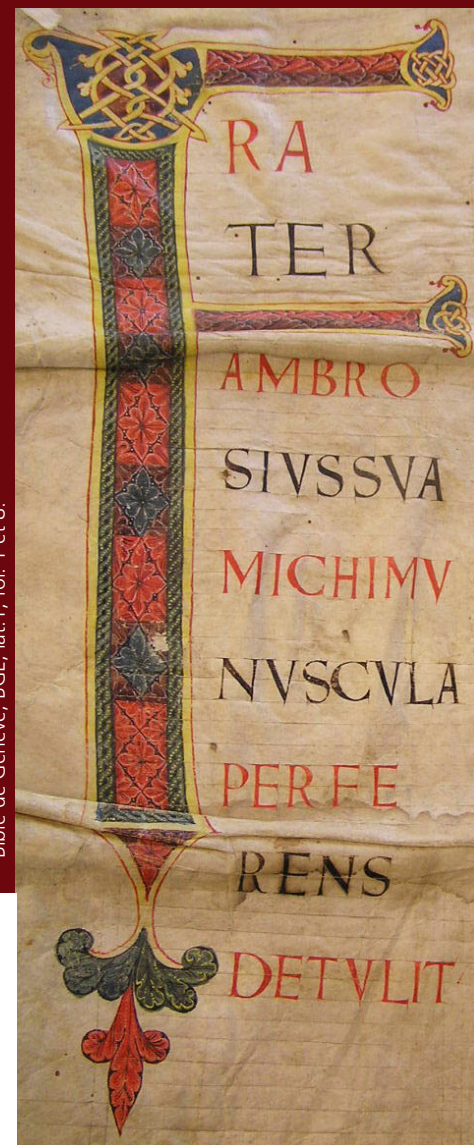 F
RA
TER
AMBRO
SIVSSVA
MICHIMV
NVSCVLA
PERFE
RENS
DETVLIT
Bible de Genève, BGE, lat.1, fol.